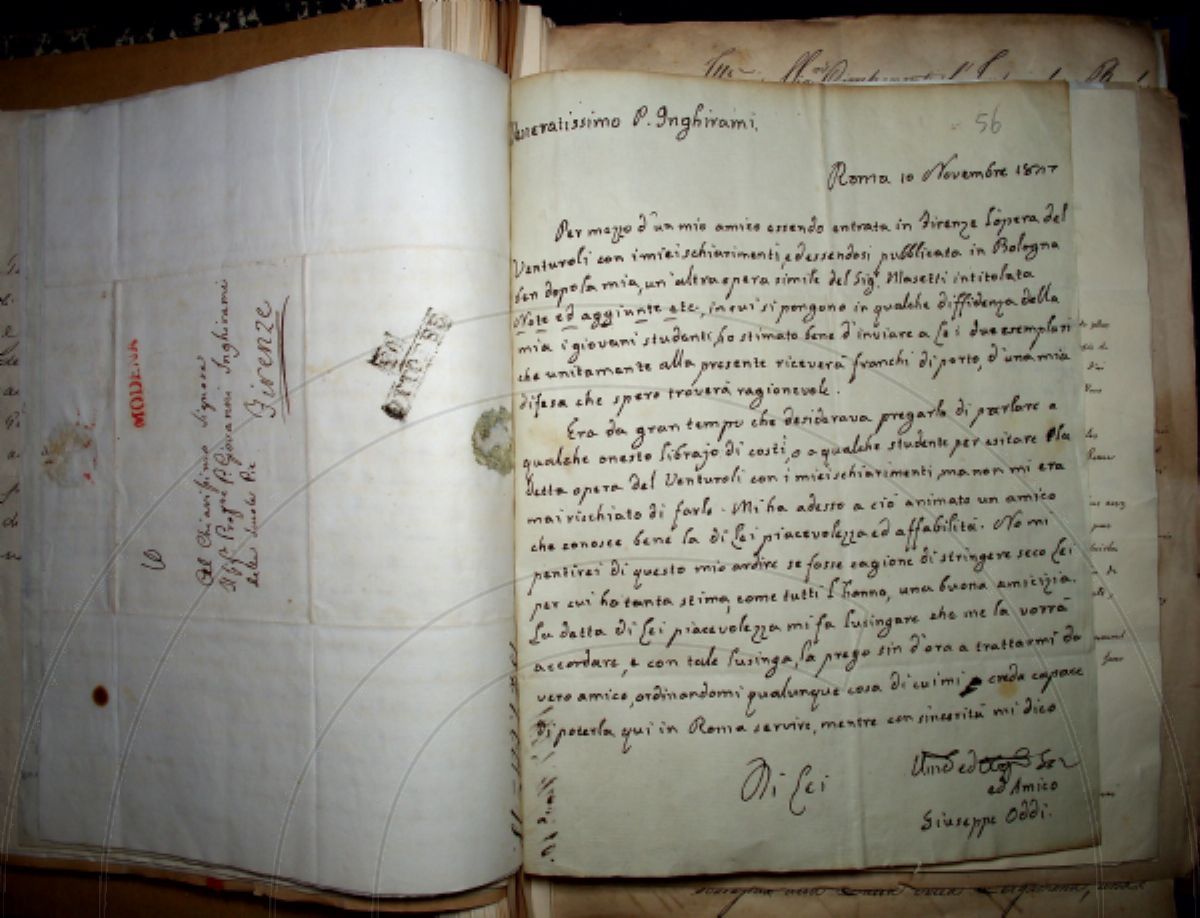 MODENA
Al Chiarissimo Signore
Il Sigr Profre P. Giovanni Inghirami
delle Scuole Pie
Firenze
Veneratissimo P. Inghirami.
56
Roma 10 Novembre
Per mezzo d'un mio amico essendo entrata in Firenze l'opera del
Venturoli con i miei schiarimenti, ed essendosi pubblicata in Bologna
ben dopo la mia, un'altra opera simile del Sigr Masetti intitolata
Note ed aggiunte etc., in cui si pongono in qualche diffidenza della
mia i giovani studenti, ho stimato bene d'inviare a Lei due esemplari
che unitamente alla presente riceverà franchi di porto, d'una mia
difesa che spero troverà ragionevole.
Era da gran tempo che desiderava pregarla di parlare a
qualche onesto librajo di costì, o a qualche studente per esitare la
detta opera del Venturoli con i miei schiarimenti, ma non mi era
mai rischiato di farlo. Mi ha adesso a ciò animato un amico
che conosce bene la di Lei piacevolezza ed affabilità. No mi
pentirei di questo mio ardire se fosse cagione di stringere seco Lei
per cui ho tanta stima, come tutti l'hanno, una buona amicizia.
La detta di Lei piacevolezza mi fa lusingare che me la vorrà
accordare, e con tale lusinga, la prego sin d'ora a trattarmi da
vero amico, ordinandomi qualunque cosa di cui mi creda capace
di poterla qui in Roma servire, mentre con sincerità mi dico
Di Lei
ed Amico
Giuseppe Oddi.